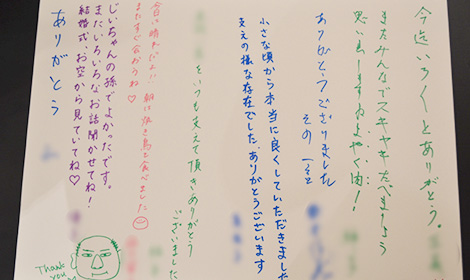 今迄いろいろとありがとう。
またみんなでスキヤキたべましょう
思い出しますねよやく肉!
ありがとうございました
その一言
小さな頃から本当に良くしていただきました
支えの様な存在でした。ありがとうございます
をいつも支えて頂きありがとう
ございました
合い晴れだよ!!朝に焼き鳥も食べました
またすぐ会おうね♡
じいちゃんの孫でよかったです。
またいろいろなお話聞かせてね!
結婚式、お空から見ていてね♡
ありがとう
Thank you